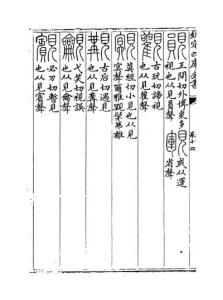 欽定四庫全書
卷十四
王問切外博衆多
視也从見員聲
或从運
省聲
古玩切諦視
也从見雚聲
莫經切小見也从見
冥聲爾雅覭髳弗離
古后切遇見
也从見冓聲
弋笑切視誤
也从見龠聲
必刃切暫見
也从見賓聲